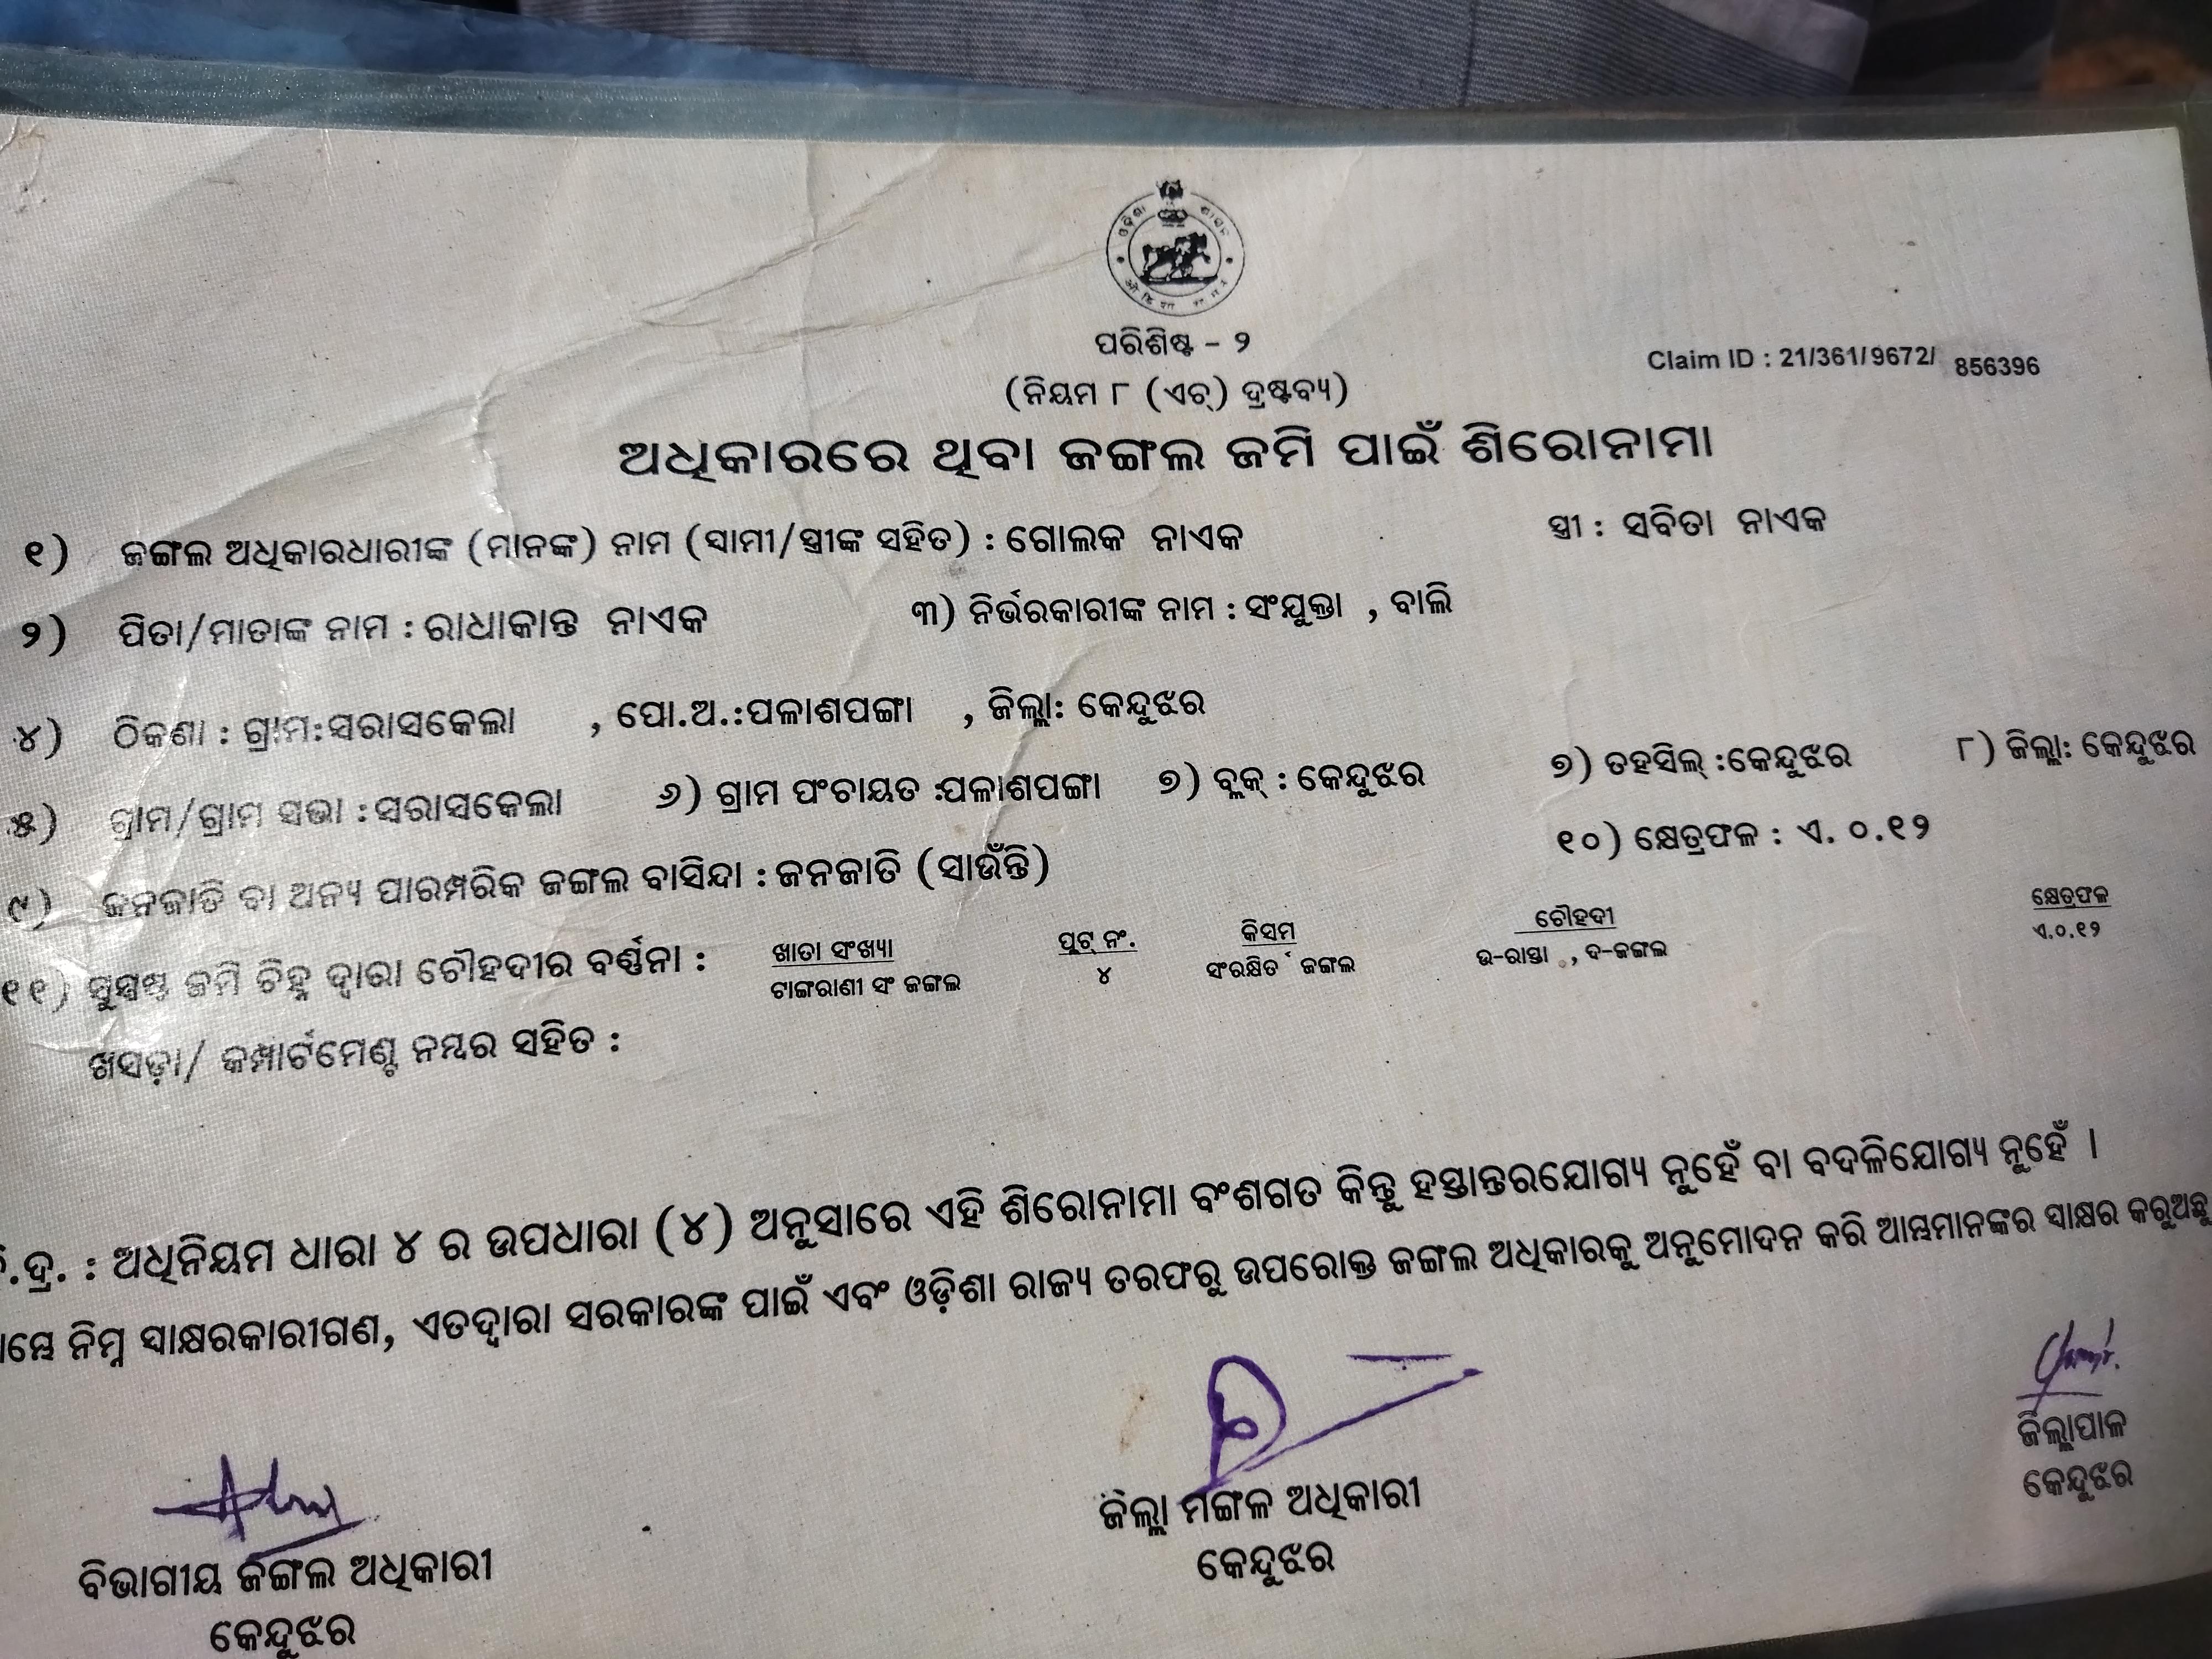 ପରିଶିଷ୍ଟ - ୨
Claim ID : 21/361/9672/ 856396
(ନିୟମ ୮ (ଏଚ୍) ଦ୍ରଷ୍ଟବ୍ୟ)
ଅଧିକାରରେ ଥିବା ଜଙ୍ଗଲ ଜମି ପାଇଁ ଶିରୋନାମା
୧) ଜଙ୍ଗଲ ଅଧିକାରଧାରୀଙ୍କ (ମାନଙ୍କ) ନାମ (ସ୍ୱାମୀ/ସ୍ତ୍ରୀଙ୍କ ସହିତ) : ଗୋଲକ ନାଏକ ସ୍ତ୍ରୀ : ସବିତା ନାଏକ
୨) ପିତା/ମାତାଙ୍କ ନାମ : ରାଧାକାନ୍ତ ନାଏକ ୩) ନିର୍ଭରକାରୀଙ୍କ ନାମ : ସଂଯୁକ୍ତା , ବାଲି
୪) ଠିକଣା : ଗ୍ରାମ:ସରାସକେଲା , ପୋ.ଅ.:ପଳାଶପଙ୍ଗା , ଜିଲ୍ଲା: କେନ୍ଦୁଝର
୫) ଗ୍ରାମ/ଗ୍ରାମ ସଭା : ସରାସକେଲା ୬) ଗ୍ରାମ ପଂଚାୟତ :ପଳାଶପଙ୍ଗା ୭) ବ୍ଲକ୍ : କେନ୍ଦୁଝର ୭) ତହସିଲ୍ :କେନ୍ଦୁଝର ୮) ଜିଲ୍ଲା: କେନ୍ଦୁଝର
୯) ଜନଜାତି ବା ଅନ୍ୟ ପାରମ୍ପରିକ ଜଙ୍ଗଲ ବାସିନ୍ଦା : ଜନଜାତି (ସାଉଁନ୍ତି) ୧୦) କ୍ଷେତ୍ରଫଳ : ଏ. ୦.୧୨
୧୧) ସୁସ୍ପଷ୍ଟ ଜମି ଚିହ୍ନ ଦ୍ୱାରା ଚୌହଦୀର ବର୍ଣ୍ଣନା : ଖାତା ସଂଖ୍ୟା ପ୍ଲଟ୍ ନଂ. କିସମ ଚୌହଦୀ କ୍ଷେତ୍ରଫଳ
ଟାଙ୍ଗରାଣୀ ସଂ ଜଙ୍ଗଲ ୪ ସଂରକ୍ଷିତ ଜଙ୍ଗଲ ଉ-ରାସ୍ତା , ଦ-ଜଙ୍ଗଲ ଏ.୦.୧୨
ଖସଡ଼ା/ କମ୍ପାର୍ଟମେଣ୍ଟ ନମ୍ବର ସହିତ :
ଦ୍ର. : ଅଧିନିୟମ ଧାରା ୪ ର ଉପଧାରା (୪) ଅନୁସାରେ ଏହି ଶିରୋନାମା ବଂଶଗତ କିନ୍ତୁ ହସ୍ତାନ୍ତରଯୋଗ୍ୟ ନୁହେଁ ବା ବଦଳିଯୋଗ୍ୟ ନୁହେଁ ।
ନିମ୍ନ ସ୍ୱାକ୍ଷରକାରୀଗଣ, ଏତଦ୍ଦ୍ୱାରା ସରକାରଙ୍କ ପାଇଁ ଏବଂ ଓଡ଼ିଶା ରାଜ୍ୟ ତରଫରୁ ଉପରୋକ୍ତ ଜଙ୍ଗଲ ଅଧିକାରକୁ ଅନୁମୋଦନ କରି ଆମ୍ଭମାନଙ୍କର ସ୍ୱାକ୍ଷର କରୁଅଛୁ
ବିଭାଗୀୟ ଜଙ୍ଗଲ ଅଧିକାରୀ
କେନ୍ଦୁଝର
ଜିଲ୍ଲା ମଙ୍ଗଳ ଅଧିକାରୀ
କେନ୍ଦୁଝର
ଜିଲ୍ଲାପାଳ
କେନ୍ଦୁଝର